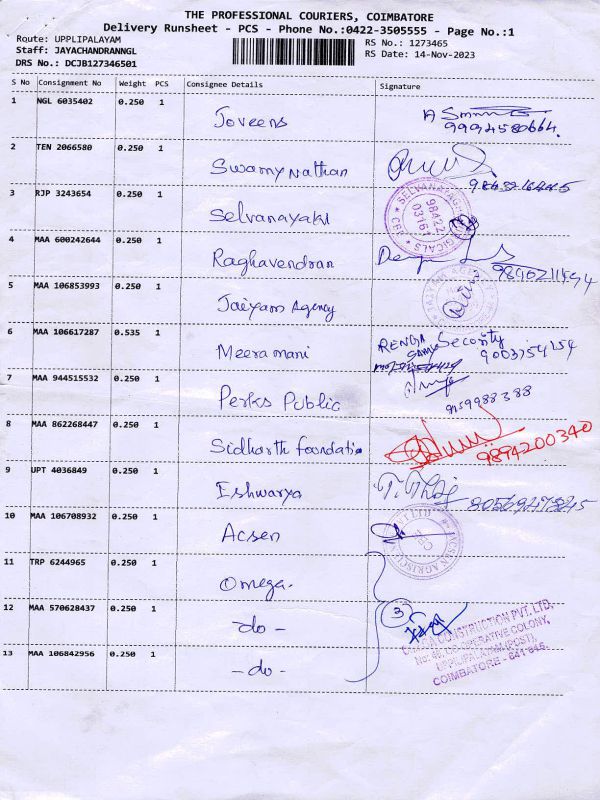 THE PROFESSIONAL COURIERS, COIMBATORE
Delivery Runsheet - PCS - Phone No.:0422-3505555 - Page No.:1
Route: UPPLIPALAYAM
Staff: JAYACHANDRANNGL
DRS No.: DCJB127346501
RS No.: 1273465
RS Date: 14-Nov-2023
S No Consignment No Weight PCS Consignee Details Signature
1 NGL 6035402 0.250 1 Joveens
9994580664.
2 TEN 2066580 0.250 1 Swamy Nathan
3 RJP 3243654 0.250 1 Selvanayaki
98422
03161
4 MAA 600242644 0.250 1 Raghavendran
5 MAA 106853993 0.250 1 Jaiyam Agency
6 MAA 106617287 0.535 1 Meera mani RENGA Security
9003754254
7 MAA 944515532 0.250 1 Perks Public
8 MAA 862268447 0.250 1 Sidharth foundation 9894200340
9 UPT 4036849 0.250 1 Eshwarya
10 MAA 106708932 0.250 1 Acsen
11 TRP 6244965 0.250 1 Omega.
12 MAA 570628437 0.250 1 -do- 3
13 MAA 106842956 0.250 1 -do-
CONSTRUCTION PVT. LTD.
CO-OPERATIVE COLONY,
UPPILIPALAYAM (POST),
COIMBATORE - 641 015.